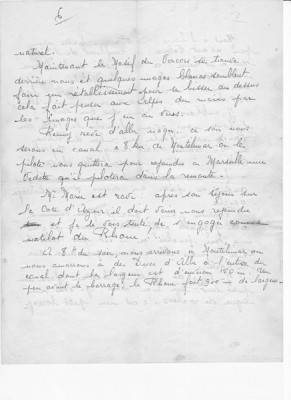 6
naturel.
Maintenant le Massif du Vercors se trouve
derrière nous et quelques nuages blancs semblent
faire un rétablissement pour se hisser au dessus
cela fait penser aux Alpes du moins par
les images que j'en ai vues.
Rémy rêve d'aller nager. ce soir nous
serons en canal à 8 km de Montélimar où le
pilote nous quittera pour reprendre à Marseille une
vedette qu'il pilotera dans la remonte.
Mr Marie est ravi après son séjour sur
la Côte d'Azur il doit venir nous reprendre
et je le sens tenté de s'engager comme
matelot du Rhône.
à 8h du soir, nous arrivons à Montélimar, on
nous amarrons à des Ducs d'Albe à l'entrée du
canal dont la largeur est d'environ 150 m. Un
peu avant le barrage, le Rhône fait 300 m de largeur.